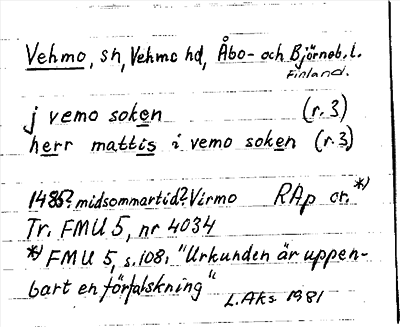 Vehmo, sn, Vehmo hd, Åbo- och Björneb. l.
Finland.
j vemo soken (r. 3)
herr mattis i vemo soken (r. 3)
1485? midsommartid? Virmo RAp or. *)
Tr. FMU 5, nr 4034
*) FMU 5, s. 108: "Urkunden är uppen-
bart en förfalskning"
L. Aks 1981